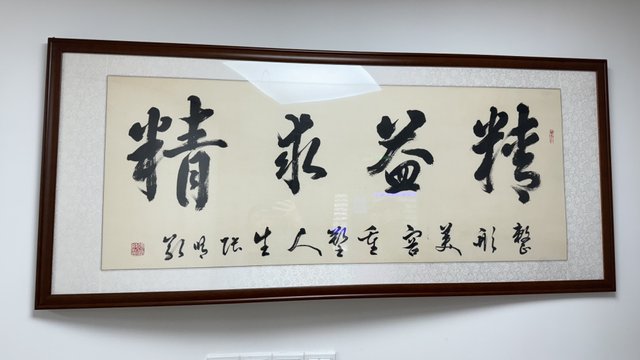 精益求精
整形美容重塑人生张明